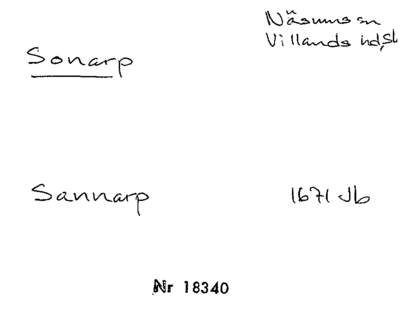 Näsums sn
Villands hd, Sk
Sonarp
Sannarp 1671 Jb
Nr 18340